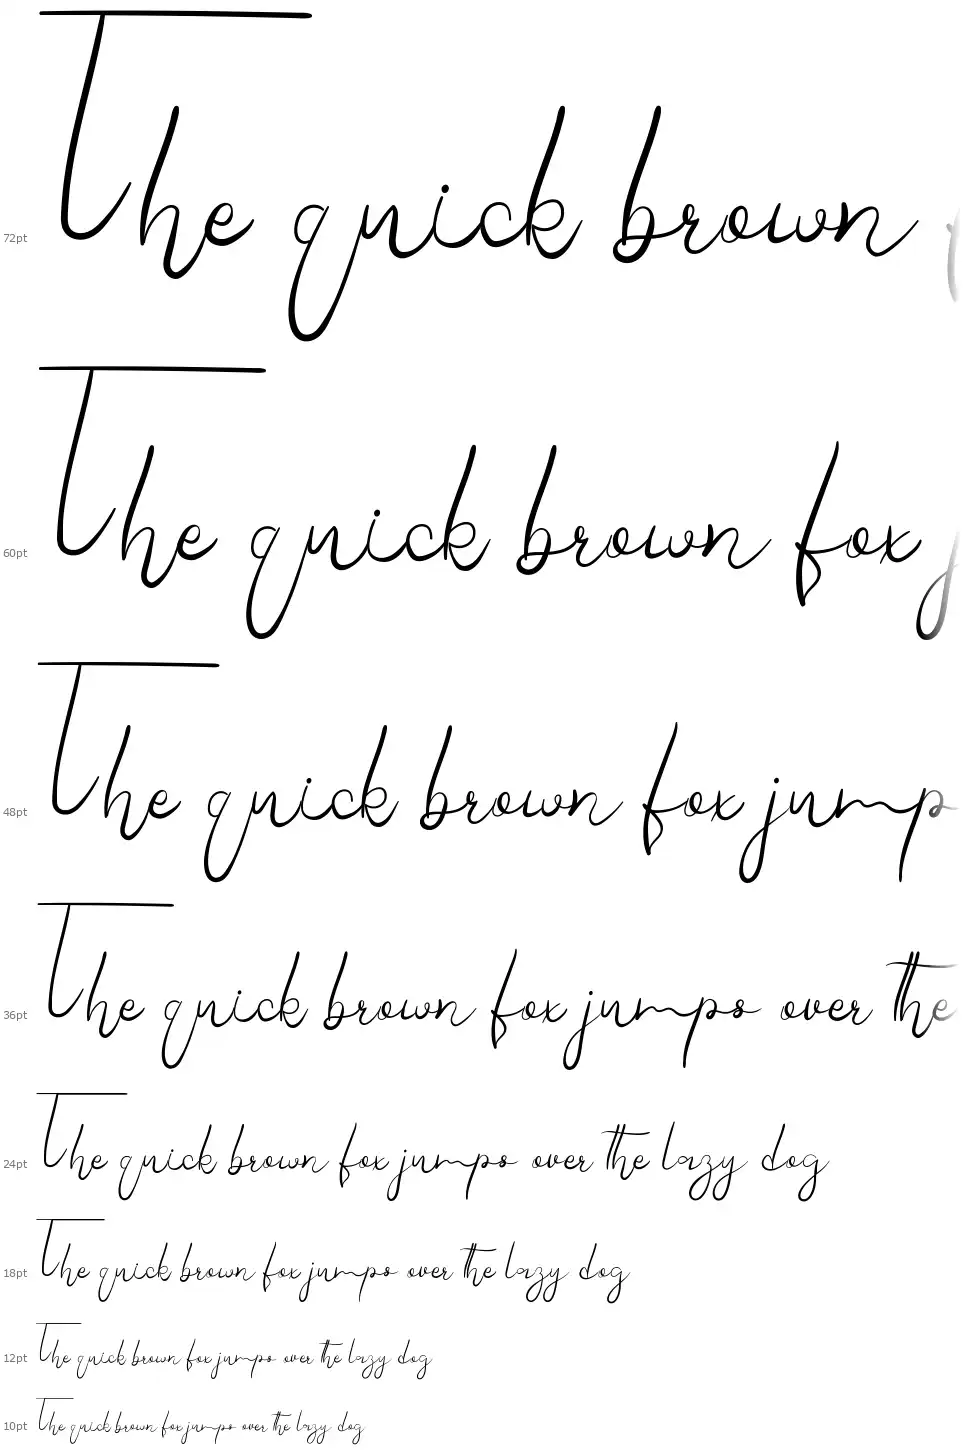 72pt The quick brown
60pt The quick brown fox j
48pt The quick brown fox jump
36pt The quick brown fox jumps over the
24pt The quick brown fox jumps over the lazy dog
18pt The quick brown fox jumps over the lazy dog
12pt The quick brown fox jumps over the lazy dog
10pt The quick brown fox jumps over the lazy dog